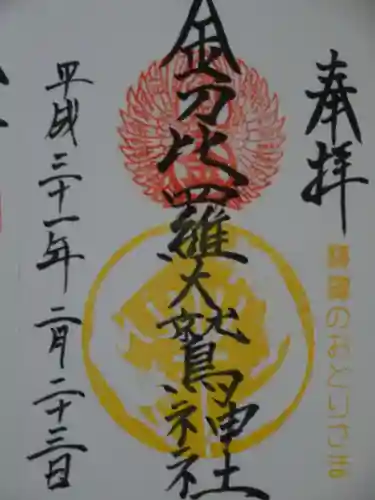 奉拝
金刀比羅大鷲神社
平成三十一年二月二十三日
のおとりさま